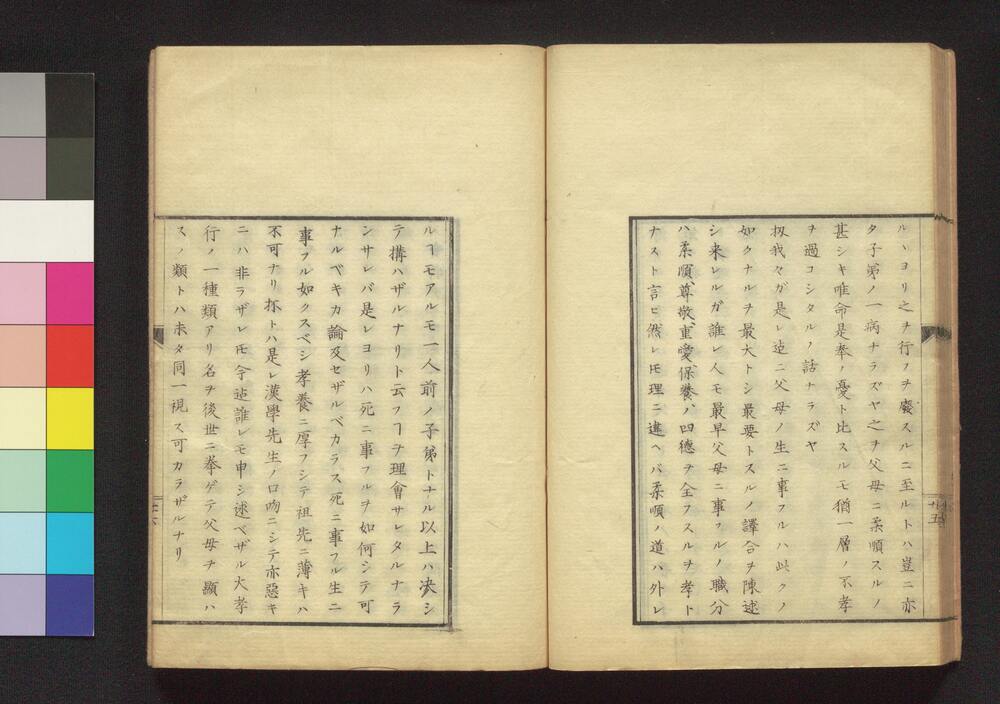 ルヽヨリ之ヲ行フヲ廢スルニ至ルトハ豈ニ亦
タ子弟ノ一病ナラズヤ之ヲ父母ニ柔順スルノ
甚シキ唯命是奉ノ憂ト比スルモ猶一層ノ不孝
ヲ過コシタルノ話ナラズヤ
扨我々ガ是レ迠ニ父母ノ生ニ事フルハ此クノ
如クナルヲ最大トシ最要トスルノ譯合ヲ陳述
シ来レルガ誰レ人モ最早父母ニ事フルノ職分
ハ柔順、尊敬、重愛、保養、ノ四德ヲ全フスルヲ孝ト
ナスト言ヒ然レ𪜈理ニ違ヘバ柔順ノ道ハ外レ
廿五
ルヿモアルモ一人前ノ子弟トナル以上ハ决シ
テ搆ハザルナリト云フヿヲ理會サレタルナラ
ンサレバ是レヨリハ死ニ事フルヲ如何シテ可
ナルベキカ論及セザルベカラス死ニ事フル生ニ
事フル如クスベシ孝養ニ厚フシテ祖先ニ薄キハ
不可ナリ抔トハ是レ漢學先生ノ口吻ニシテ亦惡キ
ニハ非ラザレ𪜈今迠誰レモ申シ述ベザル大孝
行ノ一種類アリ名ヲ後世ニ奉ゲテ父母ヲ顯ハ
スノ類トハ未タ同一視ス可カラザルナリ
廿六